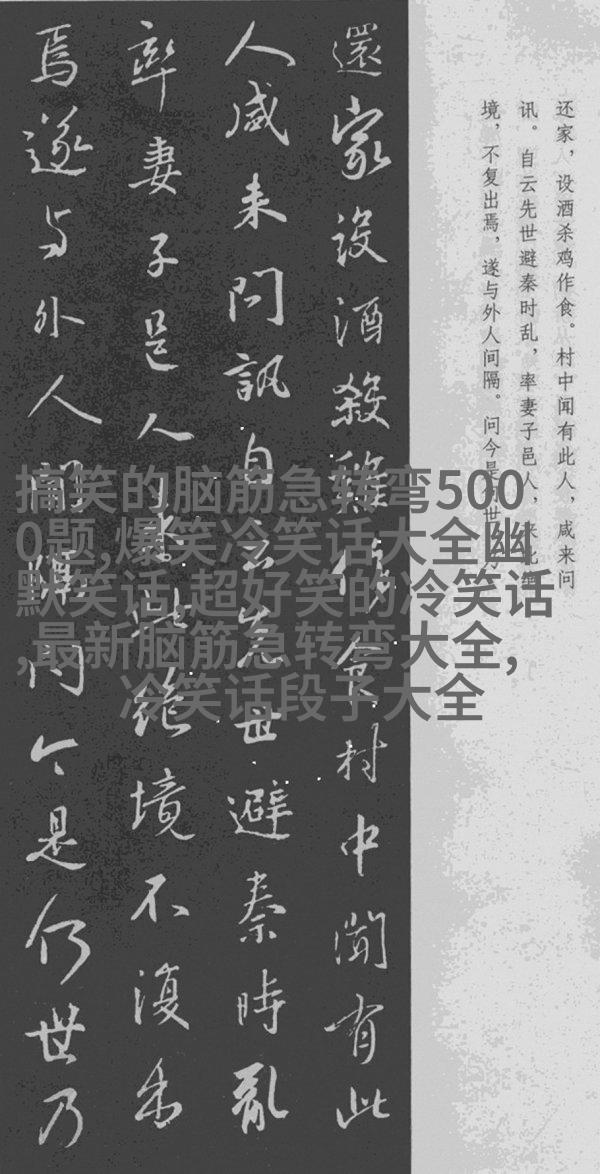 还家，设酒杀鸡作食。村中闻有此人，咸来问
讯。自云先世避秦时乱，率妻子邑人，来此绝
境，不复出焉，遂与外人间隔。问今是何世，乃
還家設酒殺雞作食村中聞有此
人咸来問訊自云先世避秦時亂
率妻子邑人来此絶境不復出
焉遂与外人間隔問今是何世乃
搞笑的脑筋急转弯500
0题,爆笑冷笑话大全幽
默笑话,超好笑的冷笑话
,最新脑筋急转弯大全,
冷笑话段子大全